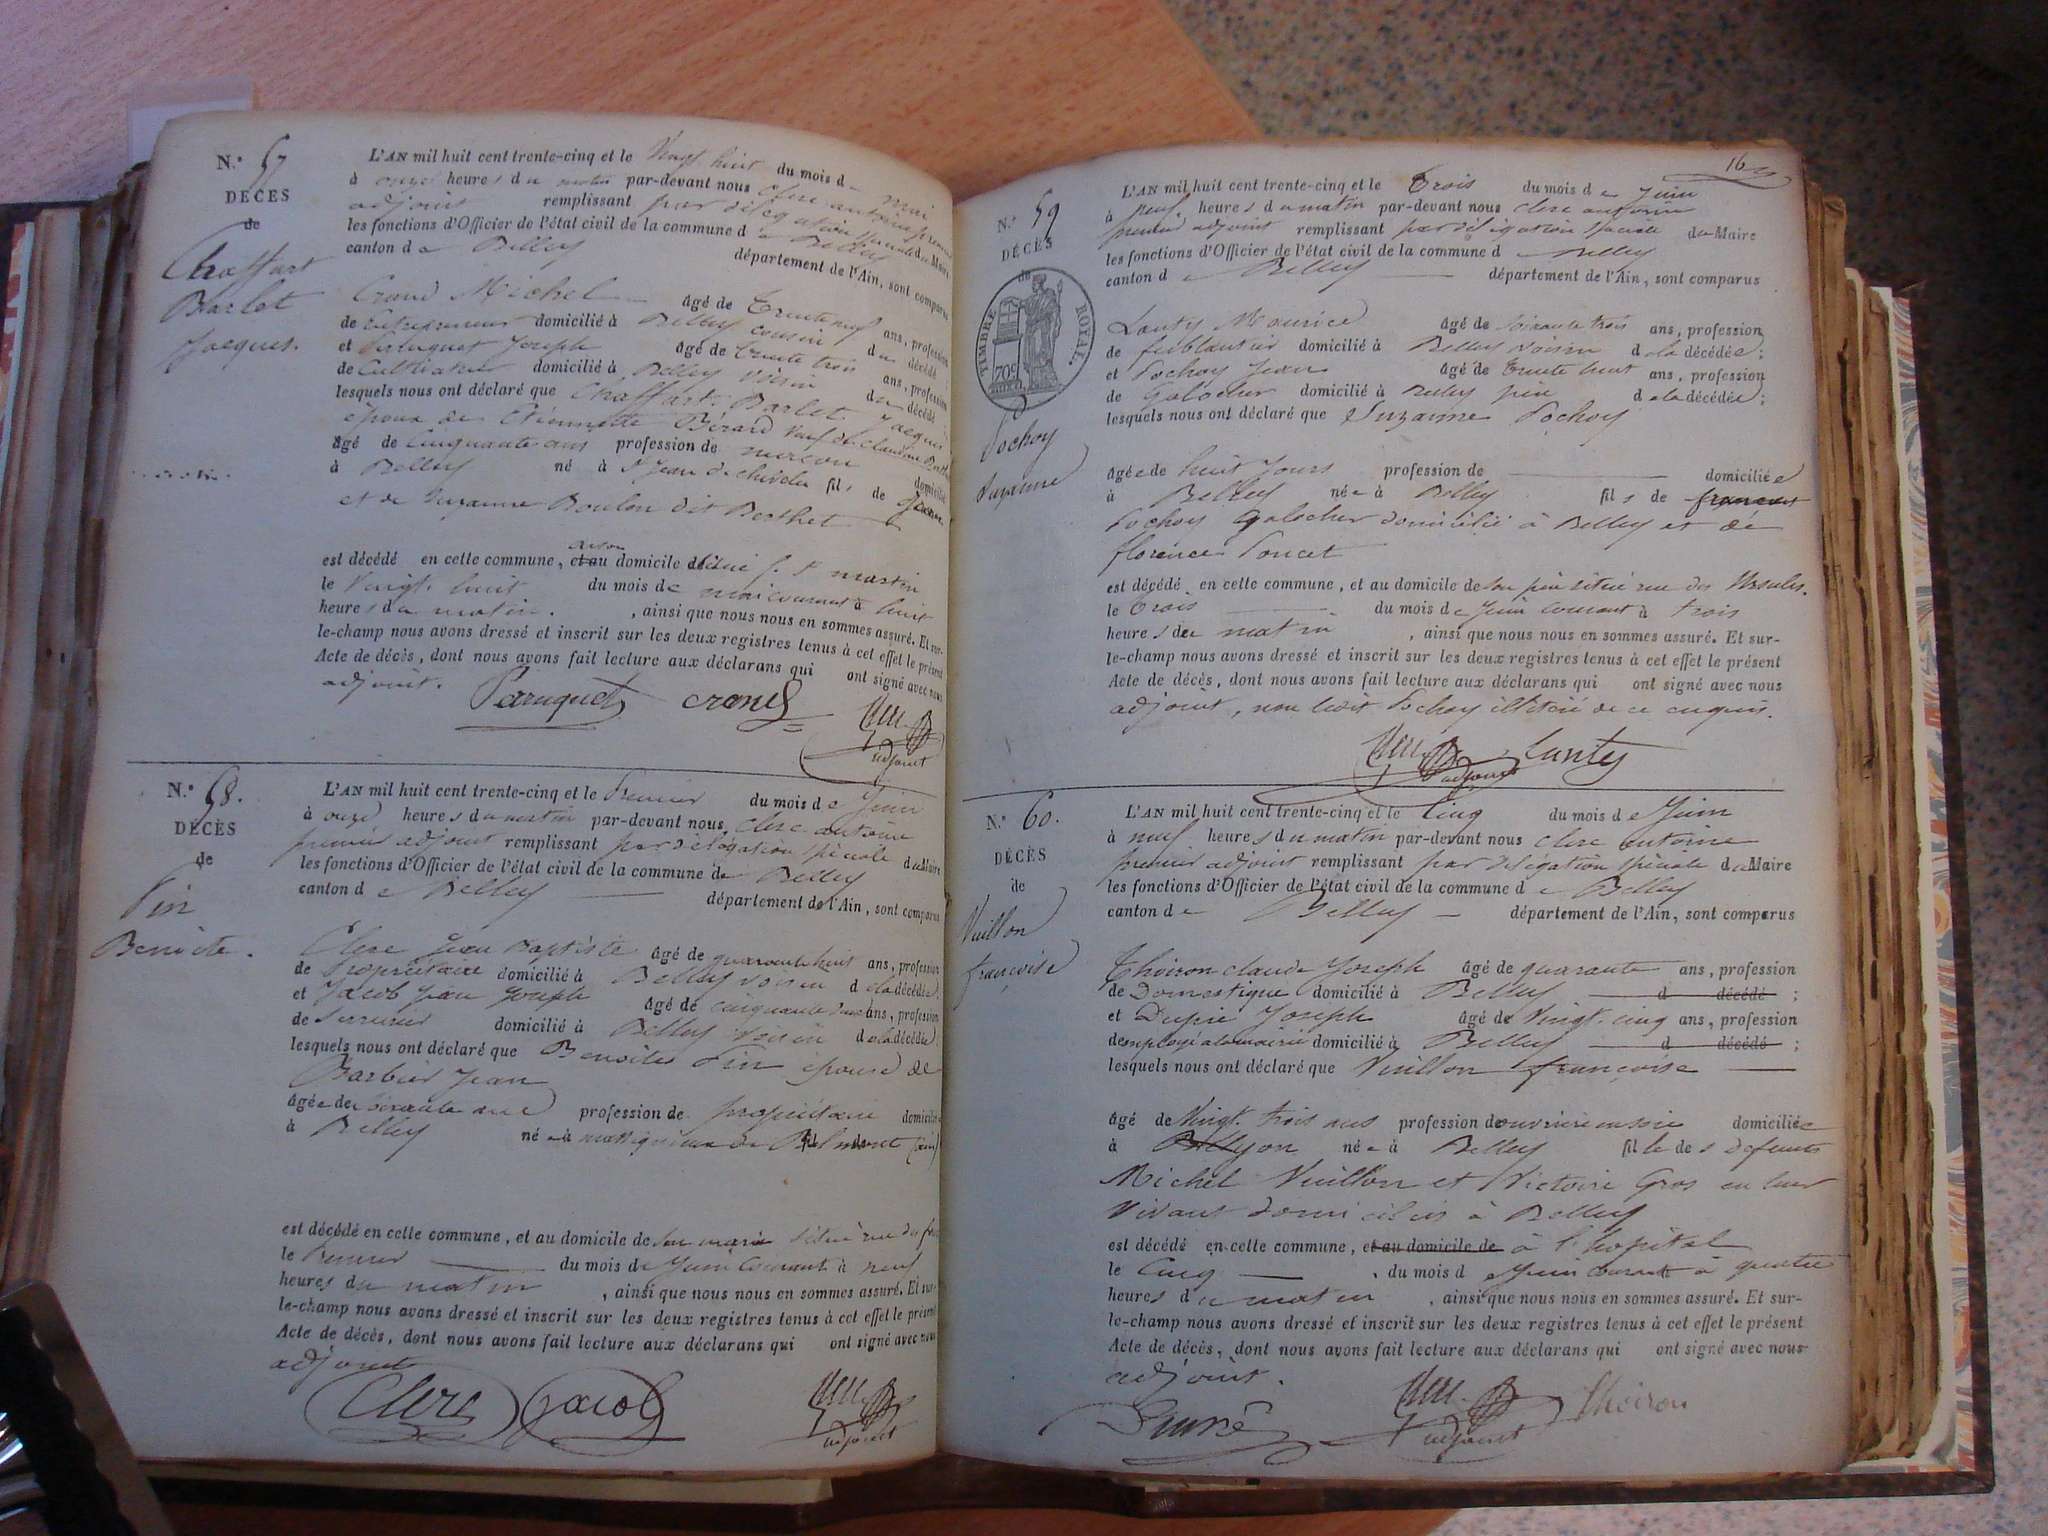 N.° 57
DÉCÈS
de
Chaffart
Barlet
Jacques.
L'AN mil huit cent trente-cinq et le Vingt huit du mois de mai
à onze heures du matin par-devant nous Clerc antoine premier
adjoint remplissant par délégation spéciale du Maire
les fonctions d'Officier de l'état civil de la commune de Belley
canton de Belley département de l'Ain, sont comparus
Crand Michel âgé de trente neuf ans, profession
de Entrepreneur domicilié à Belley cousin du décédé
et Perruquet Joseph âgé de trente trois ans, profession
de Cultivateur domicilié à Belley voisin du décédé
lesquels nous ont déclaré que Chaffart-Barlet Jacques
époux de Etiennette Bérard veuf de Claudine
âgé de cinquante ans profession de domicilié
à Belley né à St Jean de chevelu fils de
et de Suzanne Boulon dit Berthet
est décédé en cette commune, et au domicile
le Vingt huit du mois de mai courant à huit
heures du matin. , ainsi que nous nous en sommes assuré. Et sur-
le-champ nous avons dressé et inscrit sur les deux registres tenus à cet effet le présent
Acte de décès, dont nous avons fait lecture aux déclarans qui ont signé avec nous
adjoint. Perruquet
adjoint
N.° 58.
DÉCÈS
de
Pin
Benoite.
L'AN mil huit cent trente-cinq et le Premier du mois de Juin
à onze heures du matin par-devant nous Clerc antoine
premier adjoint remplissant par délégation spéciale du Maire
les fonctions d'Officier de l'état civil de la commune de Belley
canton de Belley département de l'Ain, sont comparus
Clerc Jean Baptiste âgé de quarante huit ans, profession
de Propriétaire domicilié à Belley voisin de la décédée
et Jacob Jean Joseph âgé de cinquante ans, profession
de Serrurier domicilié à Belley voisin de la décédée
lesquels nous ont déclaré que Benoite Pin épouse de
Barbier Jean
âgée de soixante ans profession de propriétaire domiciliée
à Belley née à Belmont (ain)
est décédé en cette commune, et au domicile de son mari situé rue du
le Premier du mois de Juin Courant à neuf
heures du matin , ainsi que nous nous en sommes assuré. Et sur-
le-champ nous avons dressé et inscrit sur les deux registres tenus à cet effet le présent
Acte de décès, dont nous avons fait lecture aux déclarans qui ont signé avec nous
adjoint
Clerc Jacob
adjoint
16
N.° 59
DÉCÈS
de
TIMBRE ROYAL.
70c
Pochoy
Suzanne
L'AN mil huit cent trente-cinq et le Trois du mois de Juin
à neuf heures du matin par-devant nous Clerc antoine
premier adjoint remplissant par délégation spéciale du Maire
les fonctions d'Officier de l'état civil de la commune de Belley
canton de Belley département de l'Ain, sont comparus
Lanty Maurice âgé de soixante trois ans, profession
de ferblantier domicilié à Belley voisin de la décédée;
et Pochoy Jean âgé de trente huit ans, profession
de Galocher domicilié à Belley père de la décédée;
lesquels nous ont déclaré que Suzanne Pochoy
âgée de huit Jours profession de domiciliée
à Belley née à Belley fils de
Pochoy Galocher domicilié à Belley et de
florence Poncet
est décédé en cette commune, et au domicile de son père situé rue des Ursules.
le trois du mois de Juin courant à trois
heures du matin , ainsi que nous nous en sommes assuré. Et sur-
le-champ nous avons dressé et inscrit sur les deux registres tenus à cet effet le présent
Acte de décès, dont nous avons fait lecture aux déclarans qui ont signé avec nous
adjoint, non ledit Pochoy illitéré de ce enquis.
adjoint Lanty
N.° 60.
DÉCÈS
de
Vuillon
françoise
L'AN mil huit cent trente-cinq et le Cinq du mois de Juin
à neuf heures du matin par-devant nous Clerc antoine
premier adjoint remplissant par délégation spéciale du Maire
les fonctions d'Officier de l'état civil de la commune de Belley
canton de Belley département de l'Ain, sont comparus
Thoiron claude Joseph âgé de quarante ans, profession
de Domestique domicilié à Belley d décédé ;
et Dupré Joseph âgé de Vingt-cinq ans, profession
d'employé à la mairie domicilié à Belley d décédé ;
lesquels nous ont déclaré que Vuillon françoise
âgé de Vingt-trois ans profession d'ouvrière en soie domiciliée
à Lyon née à Belley fille des défunts
Michel Vuillon et Victoire Gros en leur
vivant domiciliés à Belley
est décédé en cette commune, et au domicile de à l'hopital
le Cinq du mois de Juin courant à quatre
heures du matin , ainsi que nous nous en sommes assuré. Et sur-
le-champ nous avons dressé et inscrit sur les deux registres tenus à cet effet le présent
Acte de décès, dont nous avons fait lecture aux déclarans qui ont signé avec nous
adjoint.
adjoint Thoiron